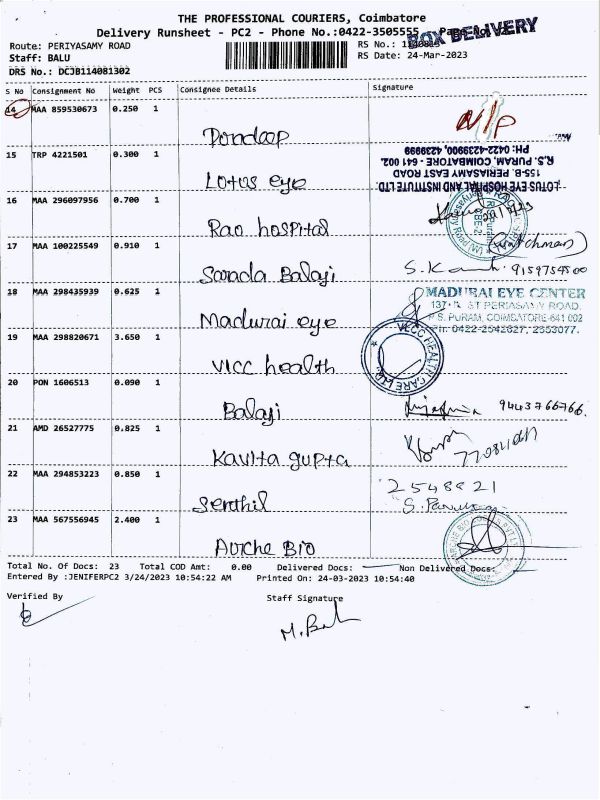 THE PROFESSIONAL COURIERS, Coimbatore
Delivery Runsheet - PC2 - Phone No.:0422-3505555
BOX DELIVERY
Route: PERIYASAMY ROAD
RS No.:
Staff: BALU
RS Date: 24-Mar-2023
DRS No.: DCJB114081302
S No Consignment No Weight PCS Consignee Details Signature
14 MAA 859530673 0.250 1
N/P
Pondeep
15 TRP 4221501 0.300 1
LOTUS EYE HOSPITAL AND INSTITUTE LTD.
155-B, PERIASAMY EAST ROAD
R.S. PURAM, COIMBATORE - 641 002.
PH: 0422-4239900, 4239999
Lotus eye
16 MAA 296097956 0.700 1
Rao hospital
(Watchman)
17 MAA 100225549 0.910 1
Sarada Balaji
S. 9159754500
18 MAA 298435939 0.625 1
MADURAI EYE CENTER
PERIASAMY ROAD,
R S. PURAM, COIMBATORE-641 002
Ph: 0422-2542827, 2553077.
Madurai eye
19 MAA 298820671 3.650 1
VLCC HEALTH CARE LTD.
VLCC health
20 PON 1606513 0.090 1
Balaji
9443766766.
21 AMD 26527775 0.825 1
Kavita gupta
22 MAA 294853223 0.850 1
2548821
Senthil
23 MAA 567556945 2.400 1
Avrche Bio
Total No. Of Docs: 23 Total COD Amt: 0.00 Delivered Docs: Non Delivered Docs:
Entered By :JENIFERPC2 3/24/2023 10:54:22 AM Printed On: 24-03-2023 10:54:40
Verified By
Staff Signature